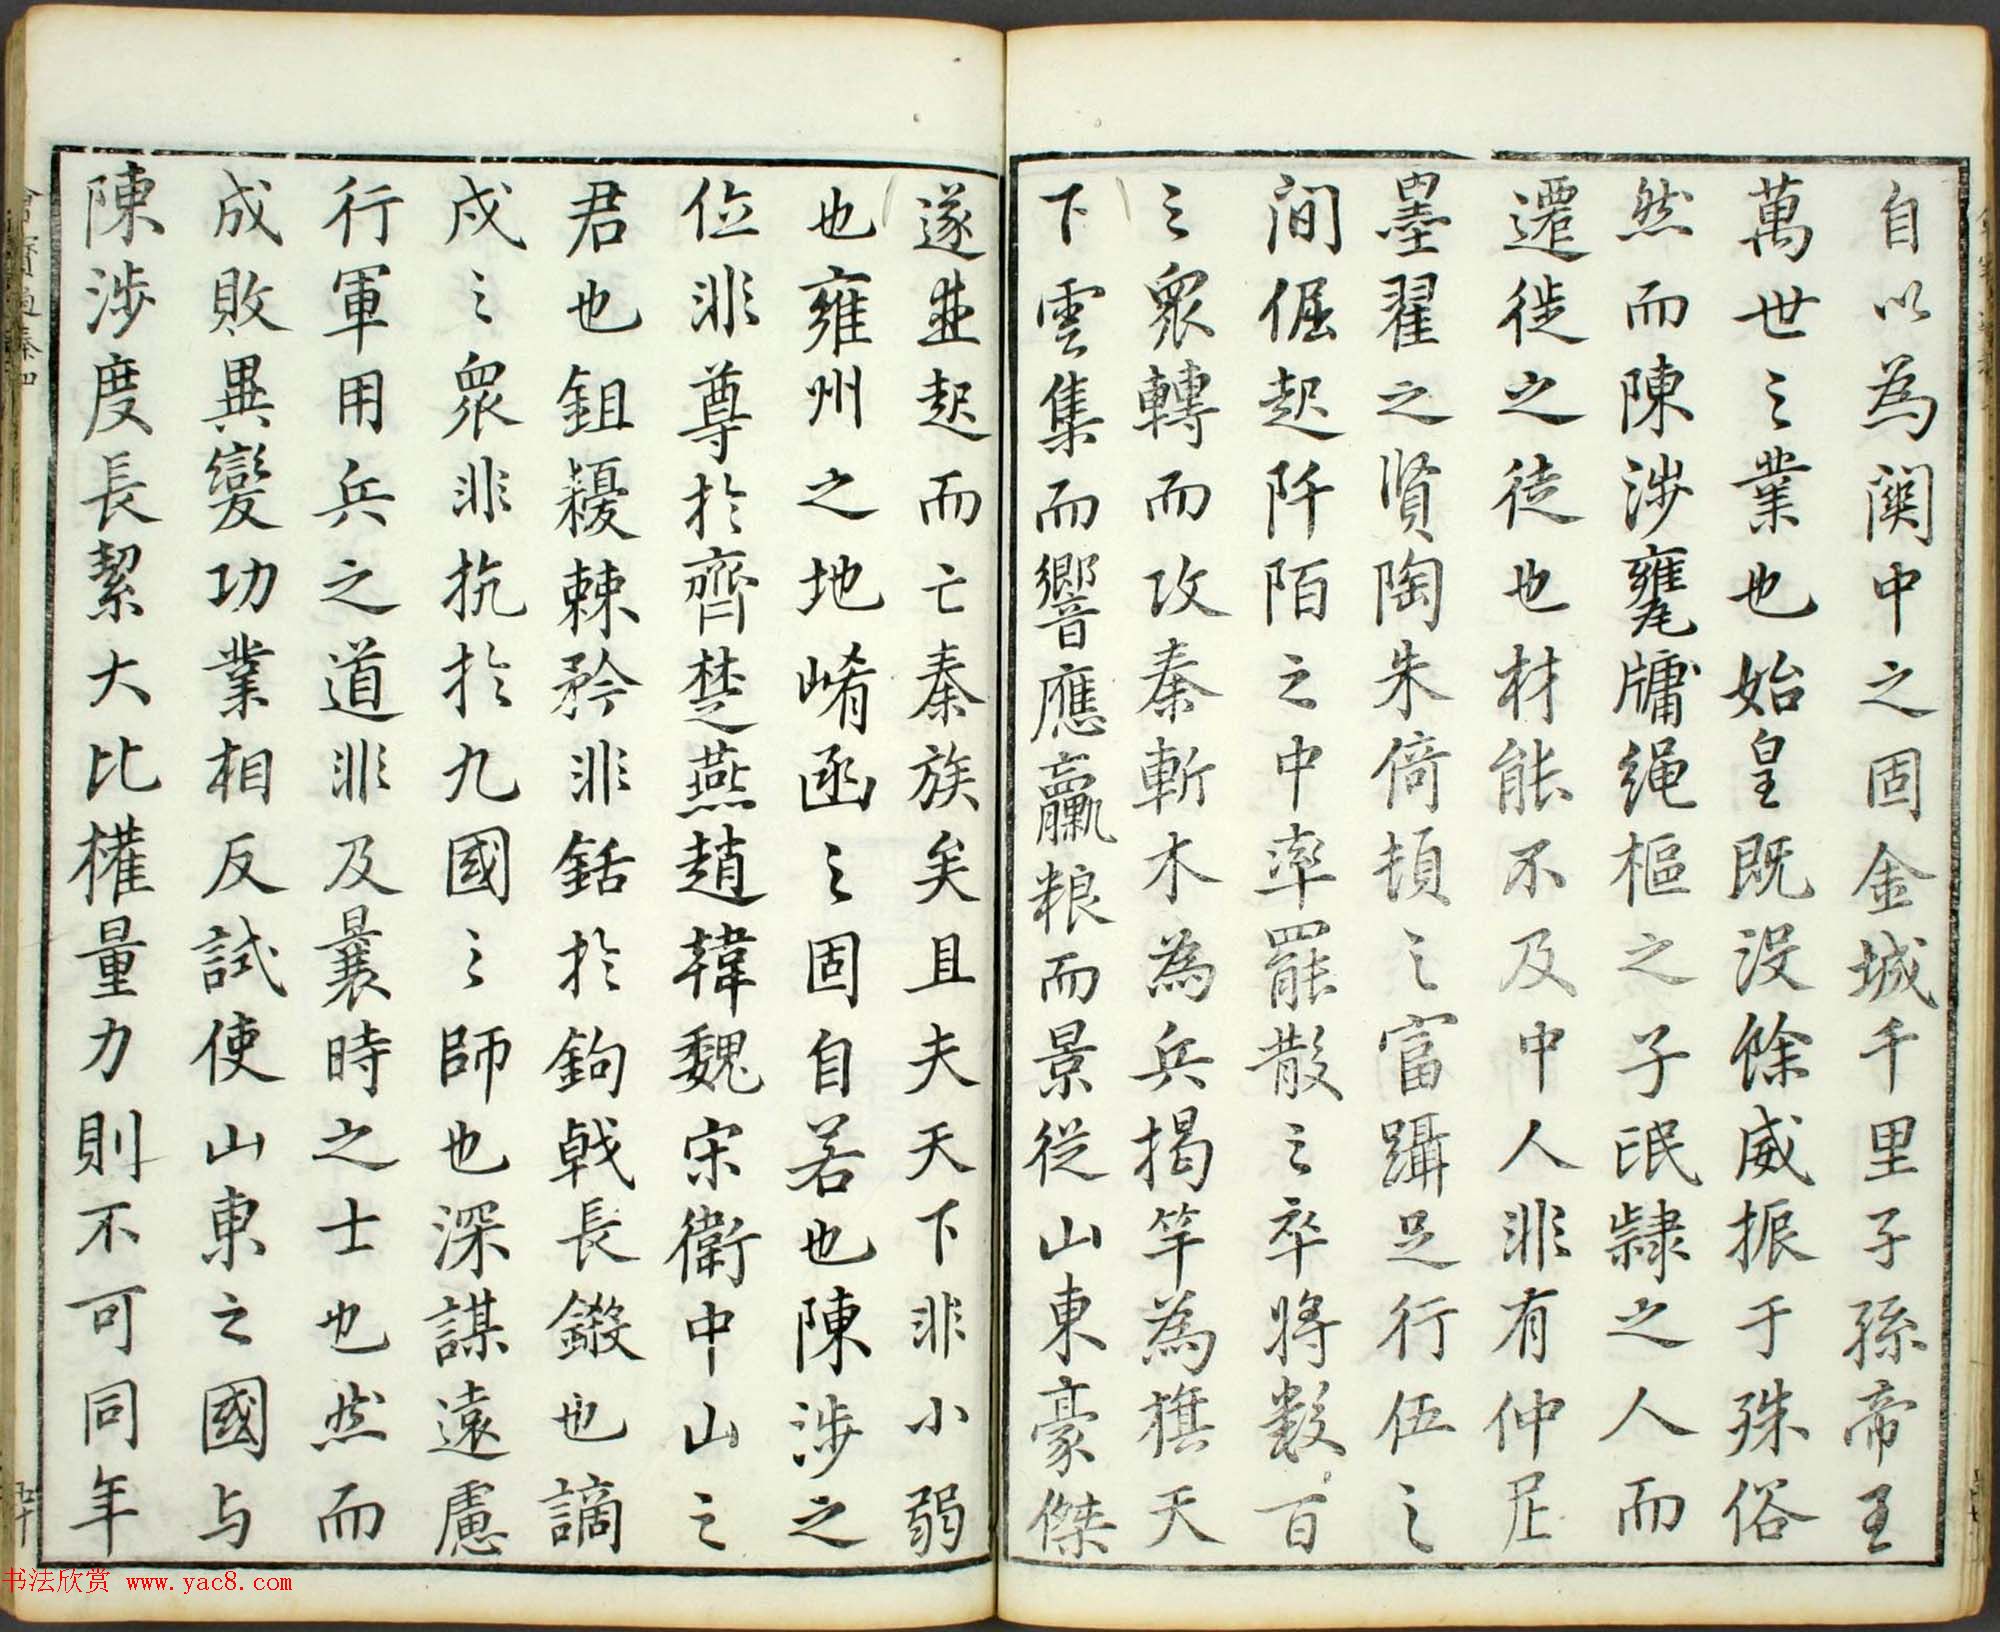 自以為關中之固金城千里子孫帝王
萬世之業也始皇既没餘威振于殊俗
然而陳涉甕牖繩樞之子氓隸之人而
遷徙之徒也材能不及中人非有仲尼
墨翟之賢陶朱倚頓之富躡足行伍之
間倔起阡陌之中率罷散之卒將数百
之衆轉而攻秦斬木為兵揭竿為旗天
下雲集而響應贏粮而景從山東豪傑
遂並起而亡秦族矣且夫天下非小弱
也雍州之地崤函之固自若也陳涉之
位非尊於齊楚燕趙韓魏宋衛中山之
君也鉏耰棘矜非銛於鉤戟長鎩也謫
戍之衆非抗於九國之師也深謀遠慮
行軍用兵之道非及曩時之士也然而
成敗異變功業相反試使山東之國与
陳涉度長絜大比權量力則不可同年
书法欣赏 www.yac8.com